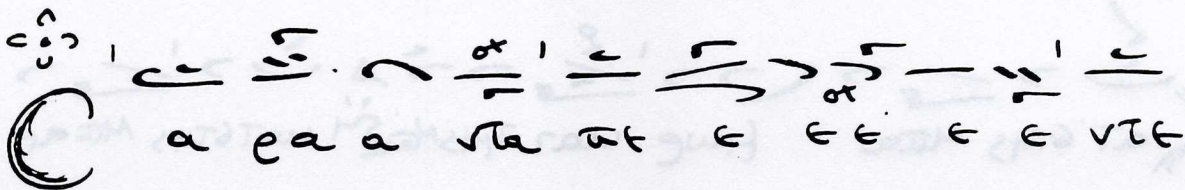 Cα ρα α ντα πε ε ε ε ε ε ντε